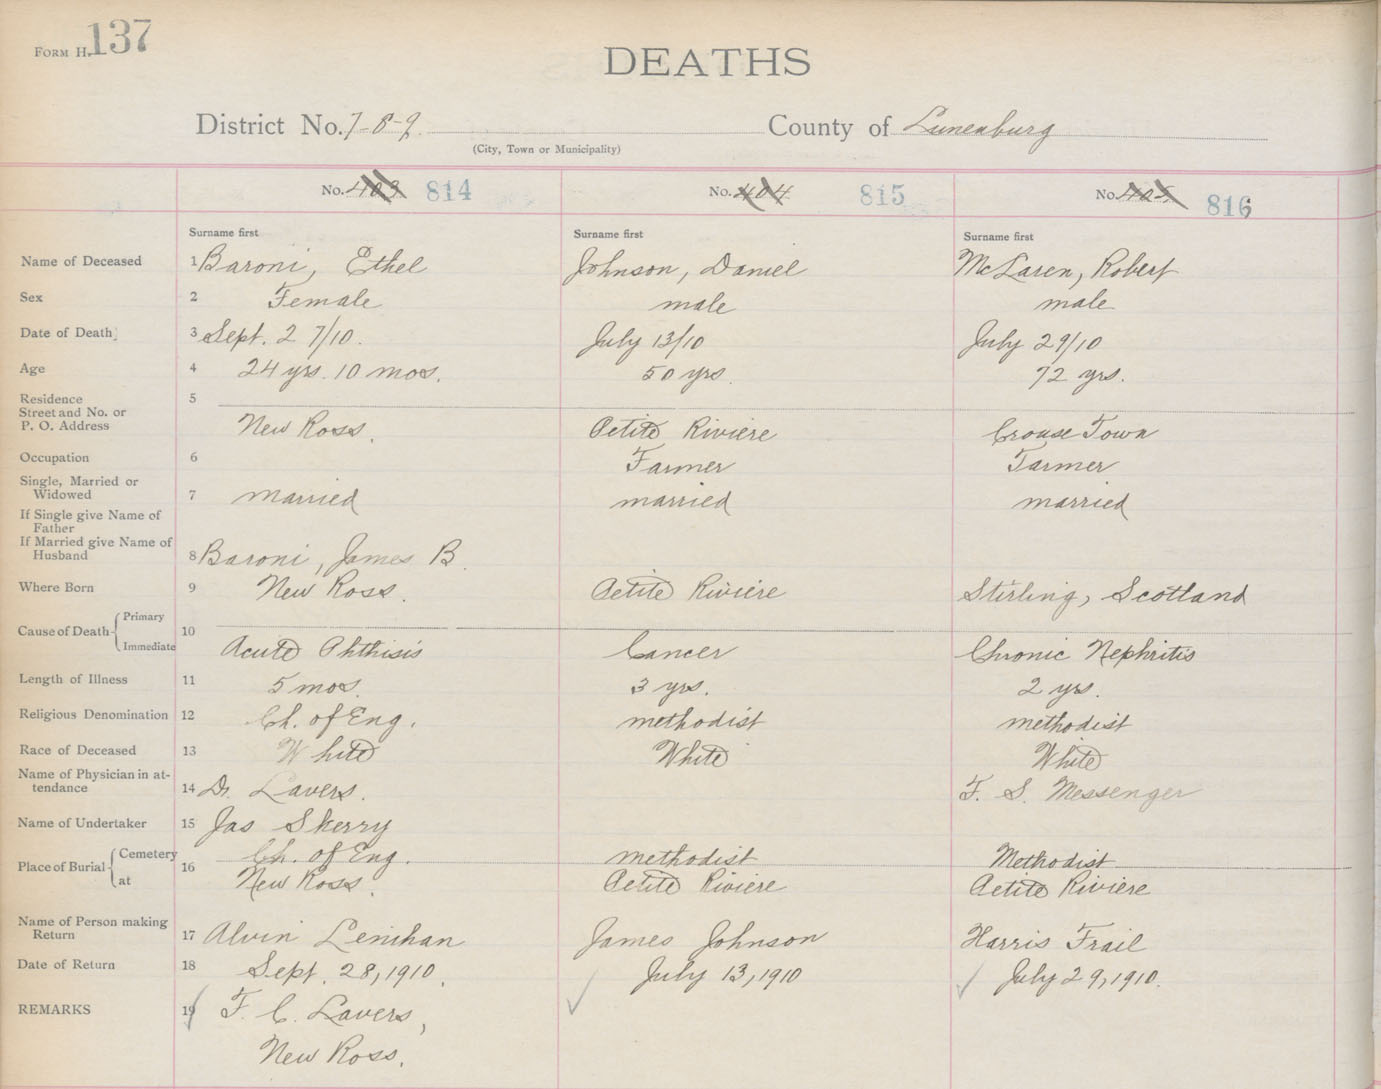 FORM H. 137
DEATHS
District No. 7-8-9 County of Lunenburg
(City, Town or Municipality)
No. 403 814 No. 404 815 No. 405 816
Surname first Surname first Surname first
Name of Deceased 1 Baroni, Ethel Johnson, Daniel McLaren, Robert
Sex 2 Female male male
Date of Death 3 Sept. 27/10. July 13/10 July 29/10
Age 4 24 yrs. 10 mos. 50 yrs. 72 yrs.
Residence 5
Street and No. or
P. O. Address New Ross. Petite Riviere Crouse Town
Occupation 6 Farmer Farmer
Single, Married or
Widowed 7 married married married
If Single give Name of
Father
If Married give Name of
Husband 8 Baroni, James B.
Where Born 9 New Ross. Petite Riviere Stirling, Scotland
Cause of Death Primary 10
Immediate Acute Phthisis Cancer Chronic Nephritis
Length of Illness 11 5 mos. 3 yrs. 2 yrs.
Religious Denomination 12 Ch. of Eng. methodist methodist
Race of Deceased 13 White White White
Name of Physician in at-
tendance 14 Dr. Lavers. F. S. Messenger
Name of Undertaker 15 Jas Skerry
Place of Burial Cemetery 16 Ch. of Eng. methodist Methodist
at New Ross. Petite Riviere Petite Riviere
Name of Person making
Return 17 Alvin Lenihan James Johnson Harris Frail
Date of Return 18 Sept. 28, 1910. July 13, 1910 July 29, 1910.
REMARKS 19 F. C. Lavers,
New Ross.